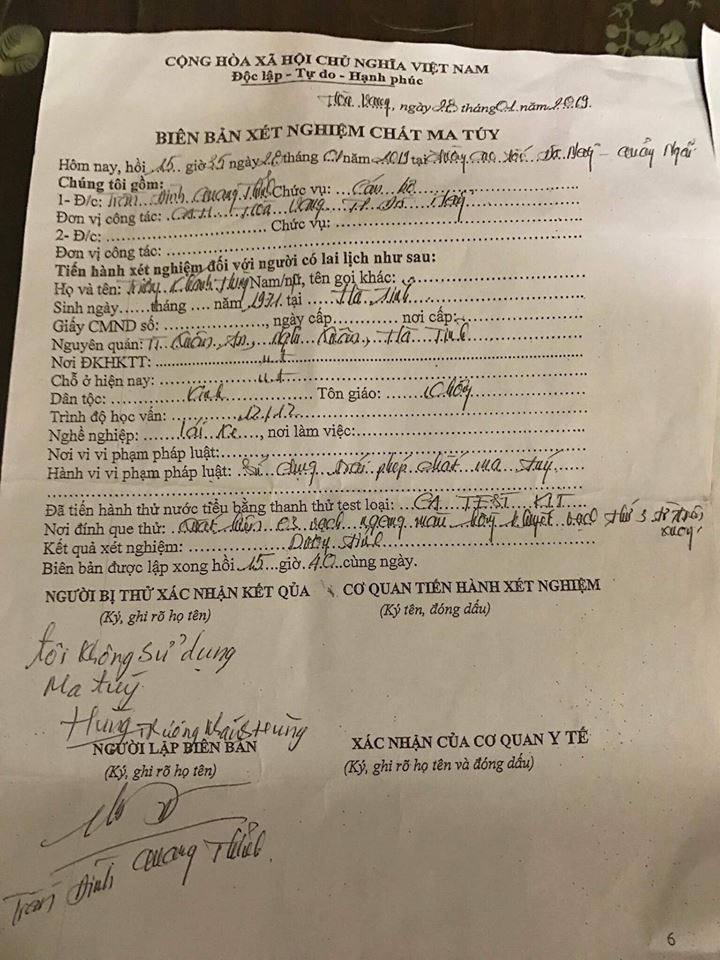 CỘNG HÒA XÃ HỘI CHỦ NGHĨA VIỆT NAM
Độc lập - Tự do - Hạnh phúc
Hòa Vang, ngày 28 tháng 01 năm 2019.
BIÊN BẢN XÉT NGHIỆM CHẤT MA TÚY
Hôm nay, hồi 15 giờ 35 ngày 28 tháng 01 năm 2019 tại đường cao tốc Đà Nẵng - Quảng Ngãi
Chúng tôi gồm:
1- Đ/c: Trần Đình Quang Chức vụ: Cán bộ
Đơn vị công tác: CAH Hòa Vang TP Đà Nẵng
2- Đ/c: Chức vụ:
Đơn vị công tác:
Tiến hành xét nghiệm đối với người có lai lịch như sau:
Họ và tên: Trương Khánh Hùng Nam/nữ, tên gọi khác:
Sinh ngày......tháng .... năm 1971 tại Hà Tĩnh
Giấy CMND số: , ngày cấp nơi cấp:
Nguyên quán: Xuân An, Nghi Xuân, Hà Tĩnh
Nơi ĐKHKTT: nt
Chỗ ở hiện nay: nt
Dân tộc: Kinh Tôn giáo: Không
Trình độ học vấn: 12/12
Nghề nghiệp: lái xe, nơi làm việc:
Nơi vi vi phạm pháp luật:
Hành vi vi phạm pháp luật: Sử dụng trái phép chất ma túy
Đã tiến hành thử nước tiểu bằng thanh thử test loại: CA TEST KIT
Nơi đính que thử: Xuất hiện 03 vạch ngang màu hồng khuyết vạch thứ 3 từ trên xuống
Kết quả xét nghiệm: Dương tính
Biên bản được lập xong hồi 15 giờ 40 cùng ngày.
NGƯỜI BỊ THỬ XÁC NHẬN KẾT QỦA CƠ QUAN TIẾN HÀNH XÉT NGHIỆM
(Ký, ghi rõ họ tên) (Ký tên, đóng dấu)
tôi không sử dụng
Ma túy
Hùng Trương Khánh Hùng
NGƯỜI LẬP BIÊN BẢN XÁC NHẬN CỦA CƠ QUAN Y TẾ
(Ký, ghi rõ họ tên) (Ký, ghi rõ họ tên và đóng dấu)
Trần Đình Quang
6